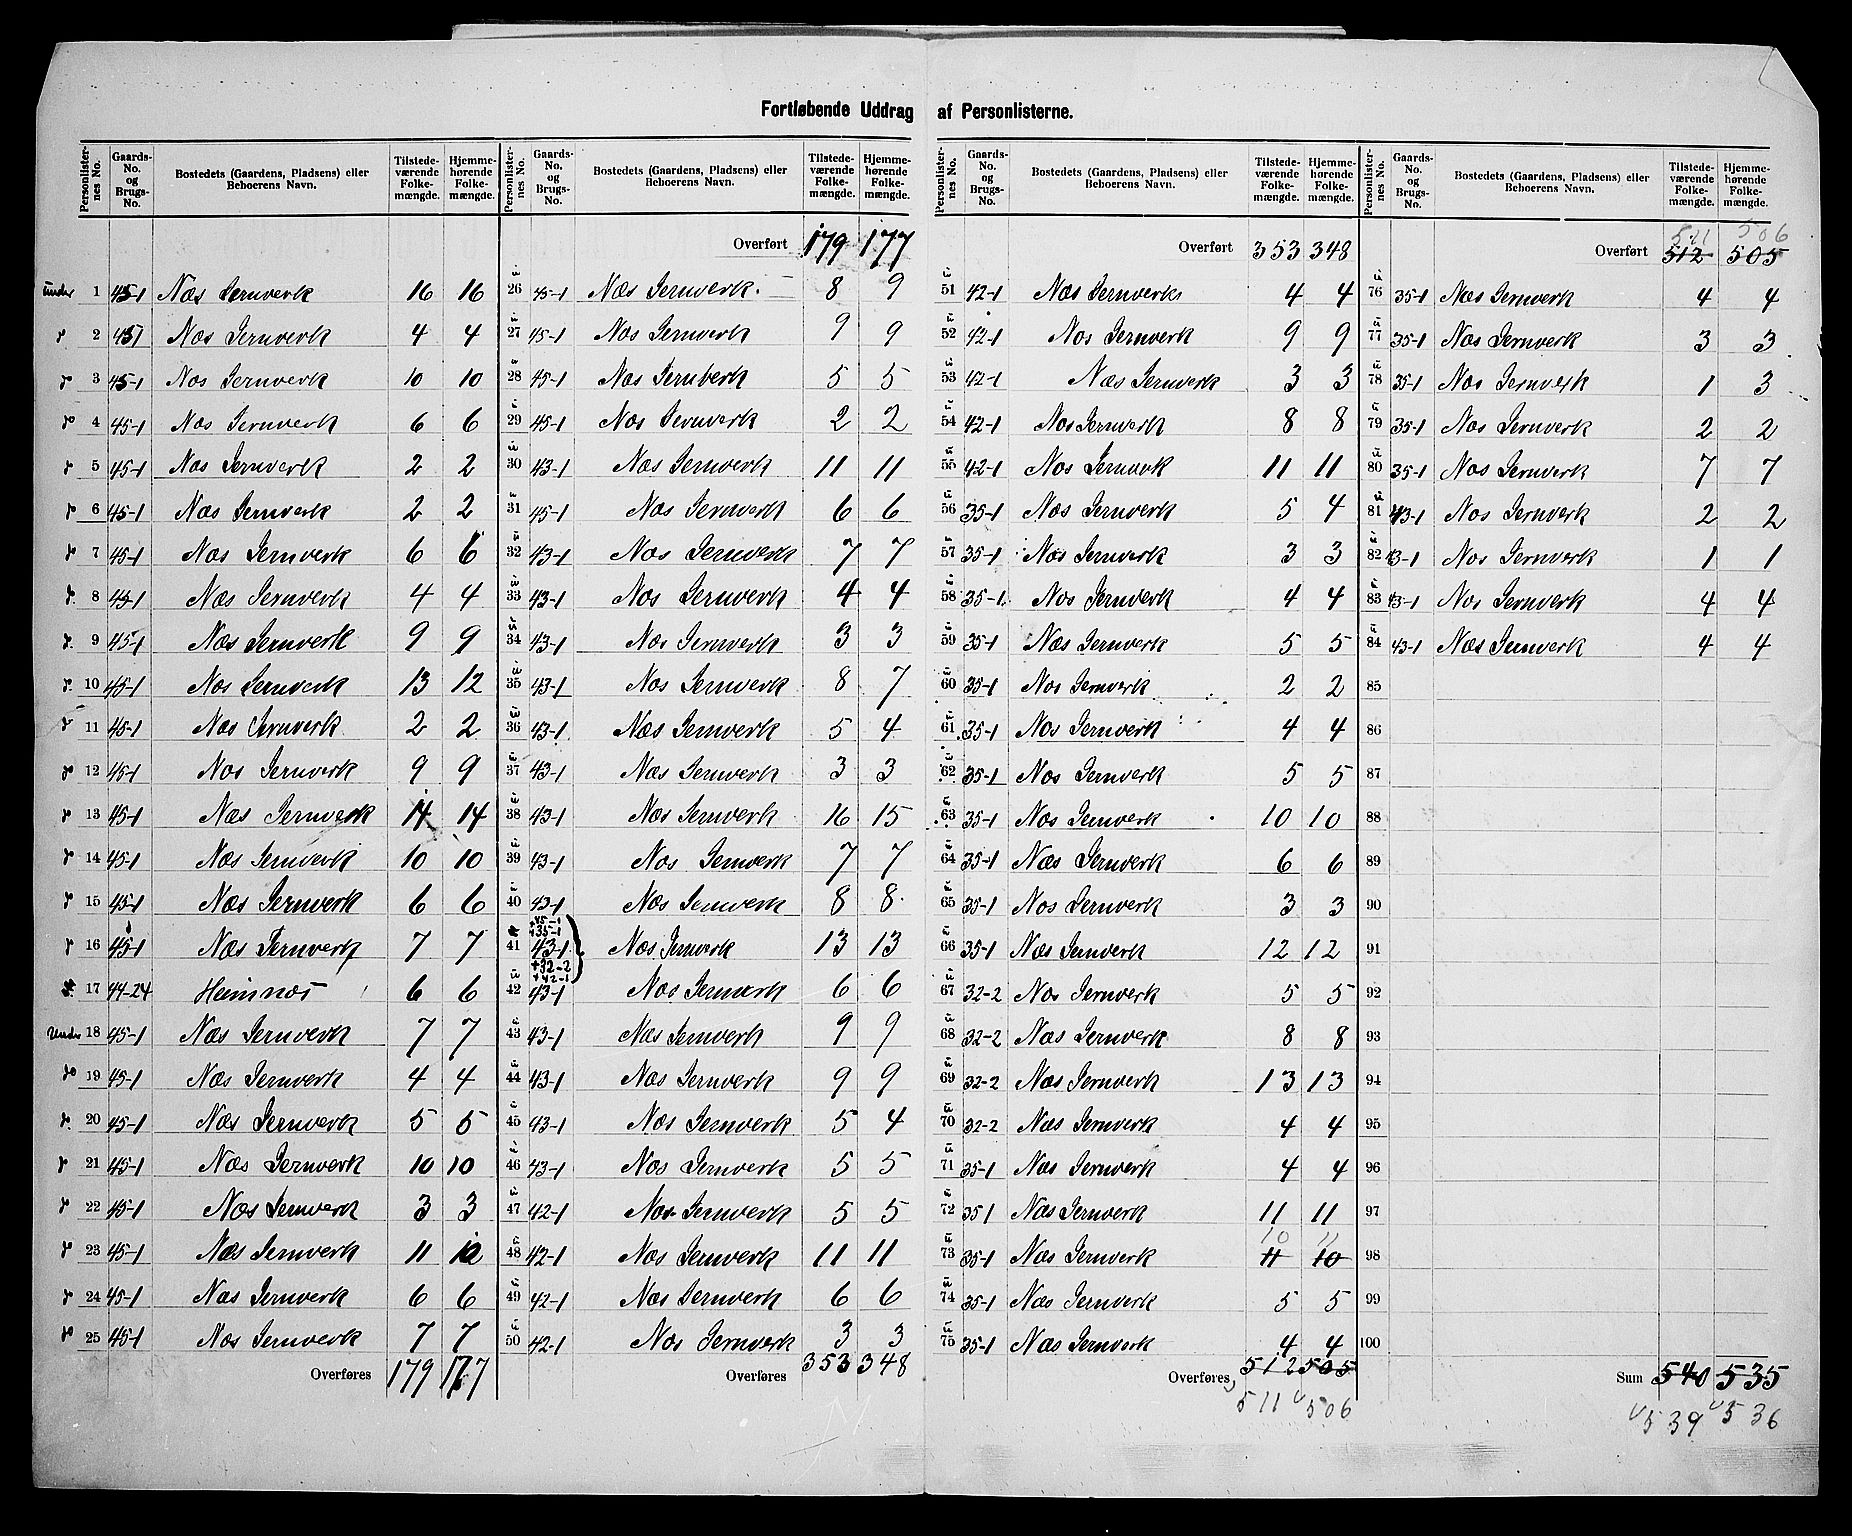 Fortløbende Uddrag af Personlisterne.
Personlister-nes No. | Gaards-No. og Brugs-No. | Bostedets (Gaardens, Pladsens) eller Beboerens Navn. | Tilstede-værende Folke-mængde. | Hjemme-hørende Folke-mængde.
under 1 45-1 Næs Jernverk 16 16
2 45-1 Næs Jernverk 4 4
3 45-1 Næs Jernverk 10 10
4 45-1 Næs Jernverk 6 6
5 45-1 Næs Jernverk 2 2
6 45-1 Næs Jernverk 2 2
7 45-1 Næs Jernverk 6 6
8 45-1 Næs Jernverk 4 4
9 45-1 Næs Jernverk 9 9
10 45-1 Næs Jernverk 13 12
11 45-1 Næs Jernverk 2 2
12 45-1 Næs Jernverk 9 9
13 45-1 Næs Jernverk 14 14
14 45-1 Næs Jernverk 10 10
15 45-1 Næs Jernverk 6 6
16 45-1 Næs Jernverk 7 7
17 44-24 Heimnæs 6 6
Under 18 45-1 Næs Jernverk 7 7
19 45-1 Næs Jernverk 4 4
20 45-1 Næs Jernverk 5 5
21 45-1 Næs Jernverk 10 10
22 45-1 Næs Jernverk 3 3
23 45-1 Næs Jernverk 11 10
24 45-1 Næs Jernverk 6 6
25 45-1 Næs Jernverk 7 7
Overføres 179 177
Personlister-nes No. | Gaards-No. og Brugs-No. | Bostedets (Gaardens, Pladsens) eller Beboerens Navn. | Tilstede-værende Folke-mængde. | Hjemme-hørende Folke-mængde.
Overført 179 177
26 45-1 Næs Jernverk 8 9
27 45-1 Næs Jernverk 9 9
28 45-1 Næs Jernverk 5 5
29 45-1 Næs Jernverk 2 2
30 43-1 Næs Jernverk 11 11
31 45-1 Næs Jernverk 6 6
32 43-1 Næs Jernverk 7 7
33 43-1 Næs Jernverk 4 4
34 43-1 Næs Jernverk 3 3
35 43-1 Næs Jernverk 8 7
36 43-1 Næs Jernverk 5 4
37 43-1 Næs Jernverk 3 3
38 43-1 Næs Jernverk 16 15
39 43-1 Næs Jernverk 7 7
40 43-1 Næs Jernverk 8 8
+45-1
+35-1
41 43-1 Næs Jernverk 13 13
+32-2
+42-1
42 43-1 Næs Jernverk 6 6
43 43-1 Næs Jernverk 9 9
44 43-1 Næs Jernverk 9 9
45 43-1 Næs Jernverk 5 4
46 43-1 Næs Jernverk 5 5
47 42-1 Næs Jernverk 5 5
48 42-1 Næs Jernverk 11 11
49 42-1 Næs Jernverk 6 6
50 42-1 Næs Jernverk 3 3
Overføres 353 348
Personlister-nes No. | Gaards-No. og Brugs-No. | Bostedets (Gaardens, Pladsens) eller Beboerens Navn. | Tilstede-værende Folke-mængde. | Hjemme-hørende Folke-mængde.
Overført 353 348
51 42-1 Næs Jernverk 4 4
52 42-1 Næs Jernverk 9 9
53 42-1 Næs Jernverk 3 3
54 42-1 Næs Jernverk 8 8
55 42-1 Næs Jernverk 11 11
56 35-1 Næs Jernverk 5 4
57 35-1 Næs Jernverk 3 3
58 35-1 Næs Jernverk 4 4
59 35-1 Næs Jernverk 5 5
60 35-1 Næs Jernverk 2 2
61 35-1 Næs Jernverk 4 4
62 35-1 Næs Jernverk 5 5
63 35-1 Næs Jernverk 10 10
64 35-1 Næs Jernverk 6 6
65 35-1 Næs Jernverk 3 3
66 35-1 Næs Jernverk 12 12
67 32-2 Næs Jernverk 5 5
68 32-2 Næs Jernverk 8 8
69 32-2 Næs Jernverk 13 13
70 32-2 Næs Jernverk 4 4
71 35-1 Næs Jernverk 4 4
72 35 1 Næs Jernverk 11 11
10 11
73 35-1 Næs Jernverk 11 10
74 35-1 Næs Jernverk 5 5
75 35-1 Næs Jernverk 4 4
Overføres 512 505
511 506
Personlister-nes No. | Gaards-No. og Brugs-No. | Bostedets (Gaardens, Pladsens) eller Beboerens Navn. | Tilstede-værende Folke-mængde. | Hjemme-hørende Folke-mængde.
511 506
Overført 512 505
76 35-1 Næs Jernverk 4 4
77 35-1 Næs Jernverk 3 3
78 35-1 Næs Jernverk 1 3
79 35-1 Næs Jernverk 2 2
80 35-1 Næs Jernverk 7 7
81 43-1 Næs Jernverk 2 2
82 43-1 Næs Jernverk 1 1
83 43-1 Næs Jernverk 4 4
84 43-1 Næs Jernverk 4 4
85
86
87
88
89
90
91
92
93
94
95
96
97
98
99
100
Sum 540 535
539 536